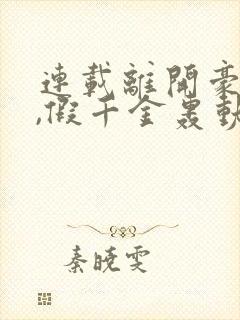 連載離開豪
,假千金轟動
秦曉雯